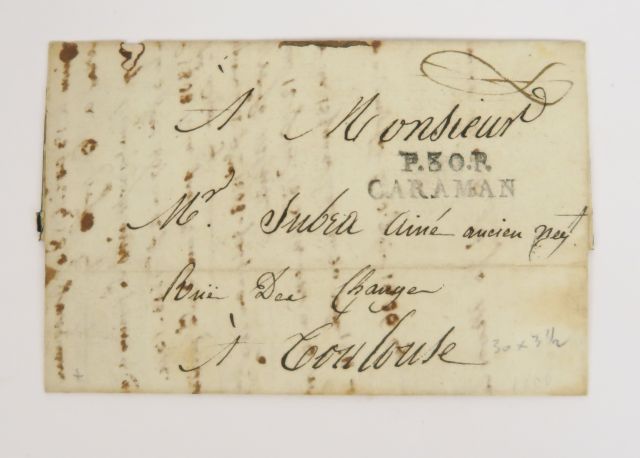 À Monsieur
P.30.P.
CARAMAN
Mr. Subra ainé ancien négt
Rüe Des Changes
À Toulouse
30 x 3 1/2